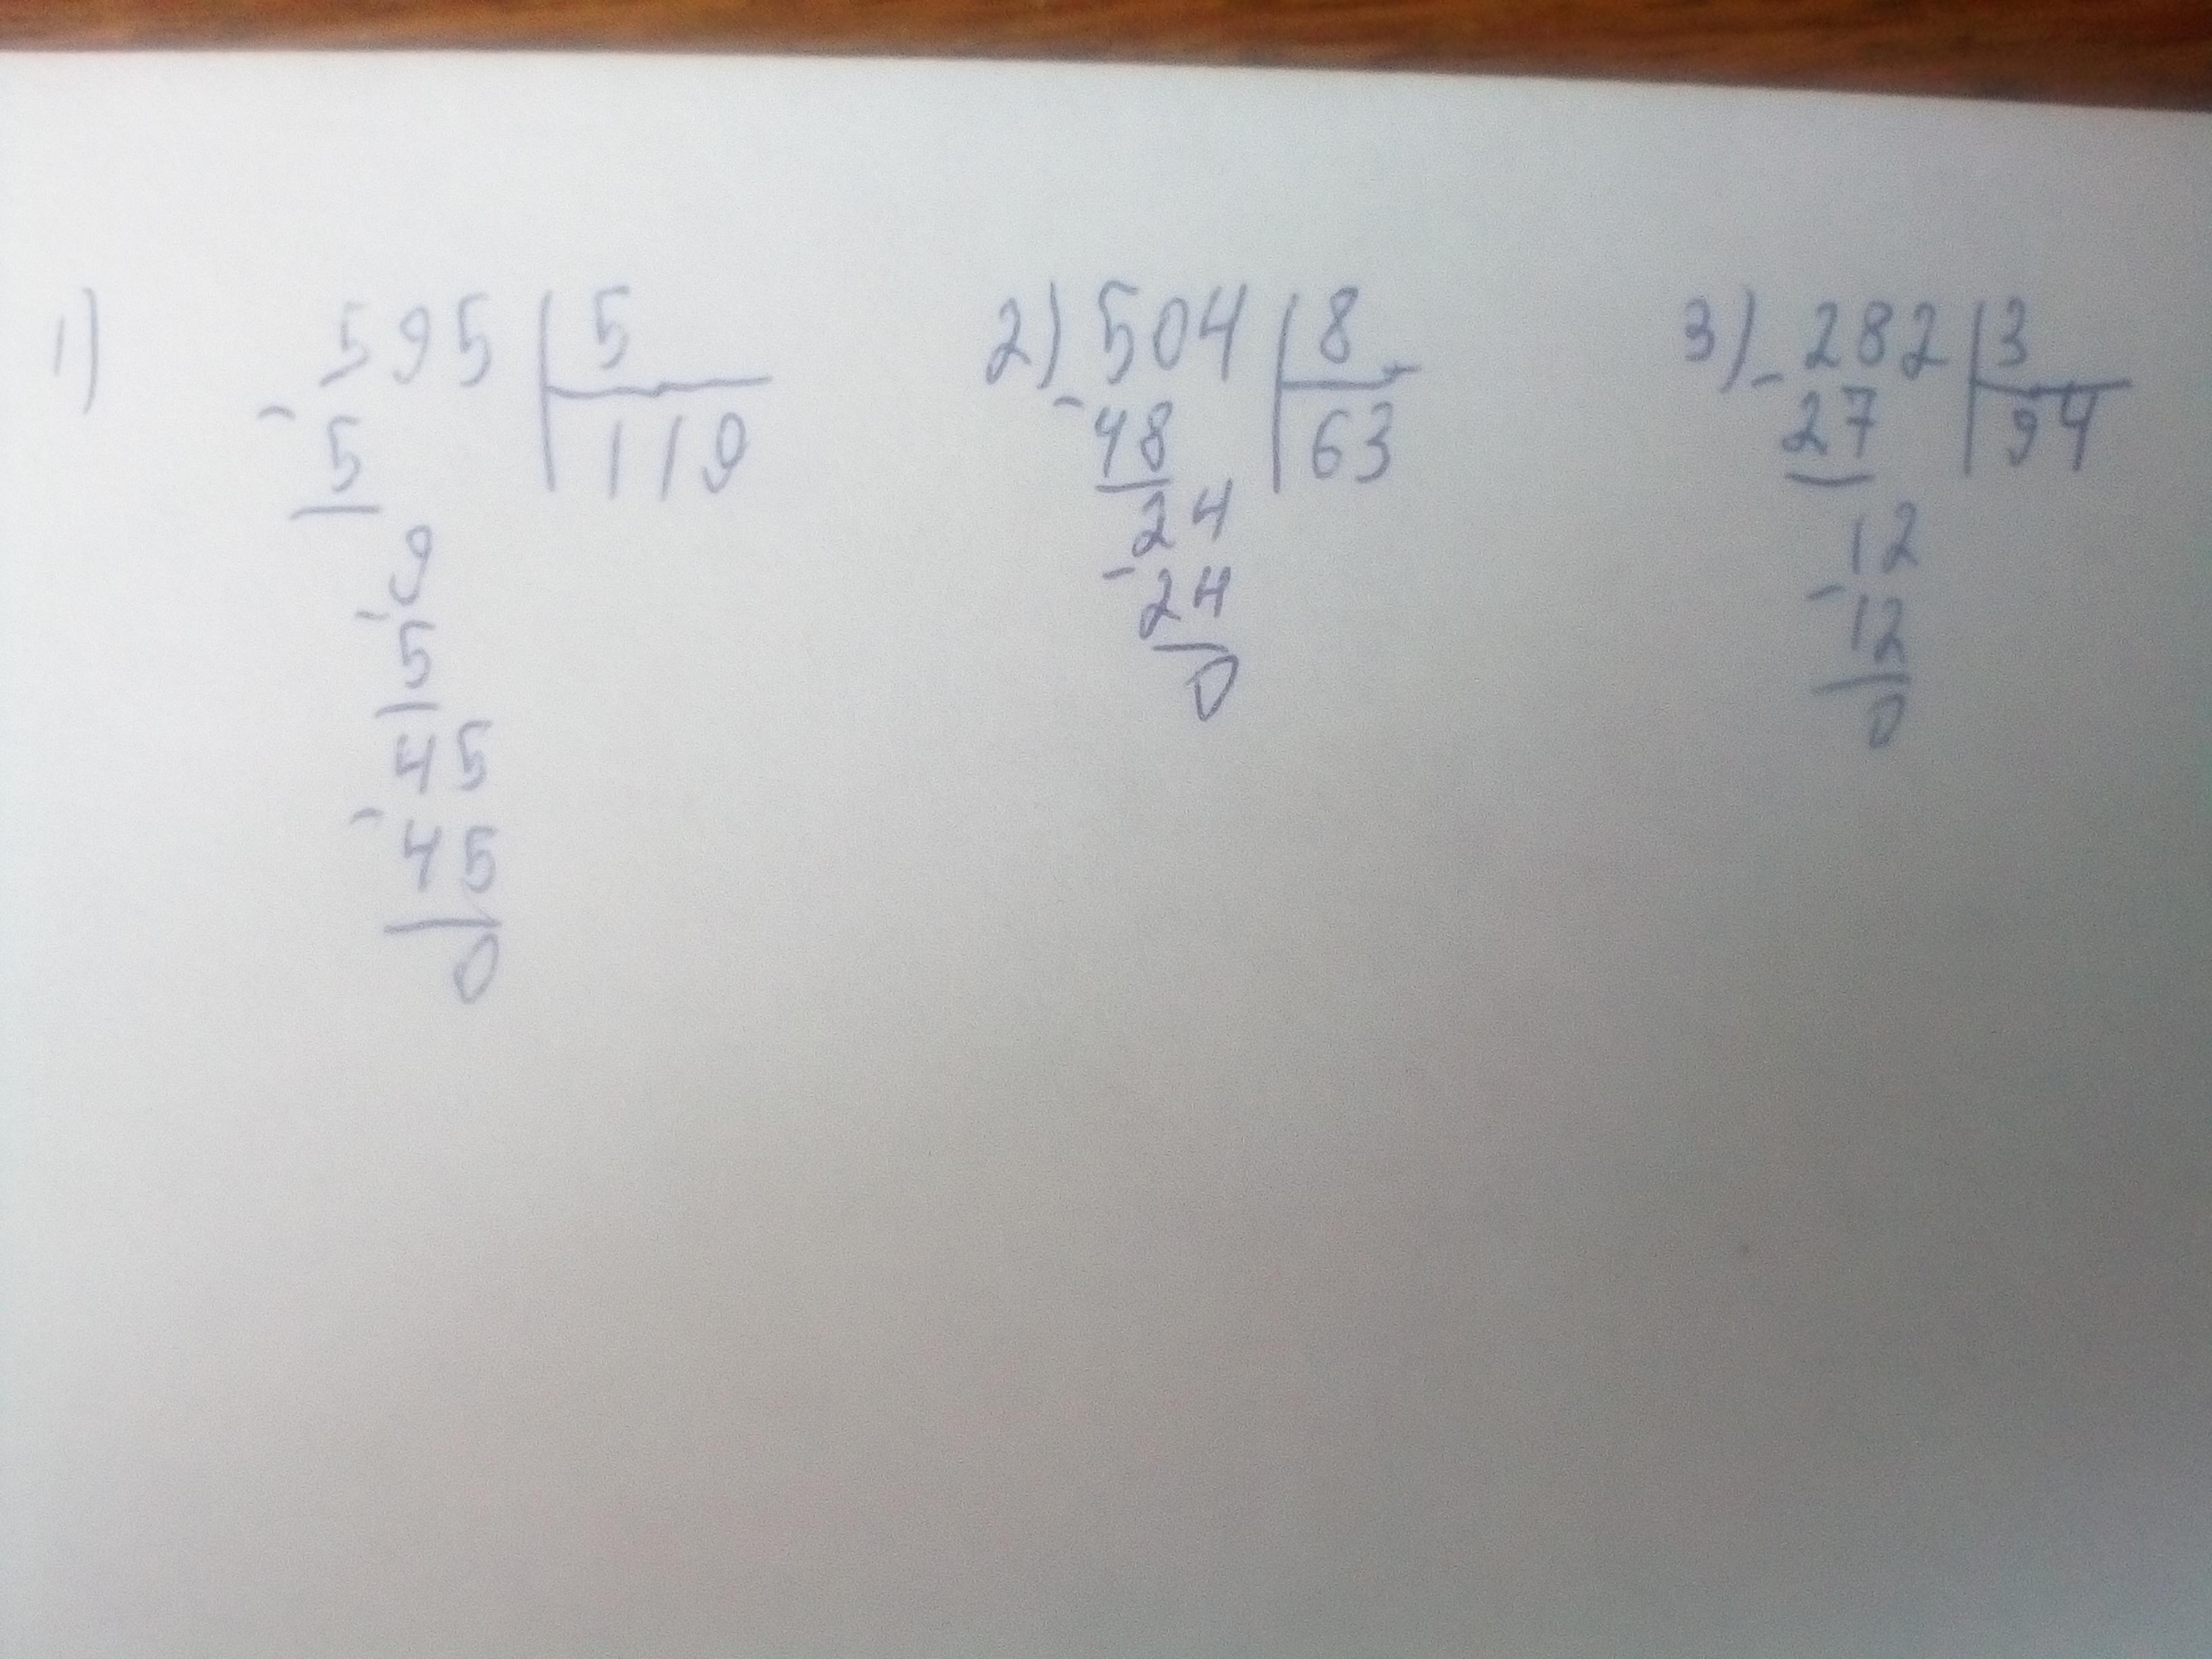 1) 595 | 5
- 5 | 119
9
- 5
45
- 45
0
2) 504 | 8
- 48 | 63
24
- 24
0
3) 282 | 3
- 27 | 94
12
- 12
0